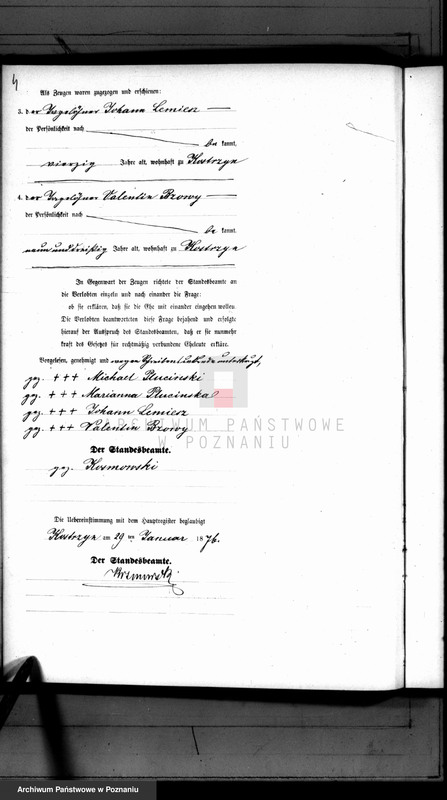 4
Als Zeugen waren zugezogen und erschienen:
3. der Tagelöhner Johann Lemiesz
der Persönlichkeit nach
be kannt,
vierzig Jahre alt, wohnhaft zu Kostrzyn
4. der Tagelöhner Valentin Brzowy
der Persönlichkeit nach
be kannt,
neun und dreißig Jahre alt, wohnhaft zu Kostrzyn
In Gegenwart der Zeugen richtete der Standesbeamte an
die Verlobten einzeln und nach einander die Frage:
ob sie erklären, daß sie die Ehe mit einander eingehen wollen.
Die Verlobten beantworteten diese Frage bejahend und erfolgte
hierauf der Ausspruch des Standesbeamten, daß er sie nunmehr
kraft des Gesetzes für rechtmäßig verbundene Eheleute erkläre.
Vorgelesen, genehmigt und wegen
gez. +++ Michael Plucinski
gez. +++ Marianna Plucinska
gez. +++ Johann Lemiesz
gez. +++ Valentin Brzowy
ARCHIWUM PAŃSTWOWE
W POZNANIU
Der Standesbeamte.
gez. Kosmowski
Die Uebereinstimmung mit dem Hauptregister beglaubigt
Kostrzyn am 29 ten Januar 1876.
Der Standesbeamte.
Kosmowski
Archiwum Państwowe w Poznaniu